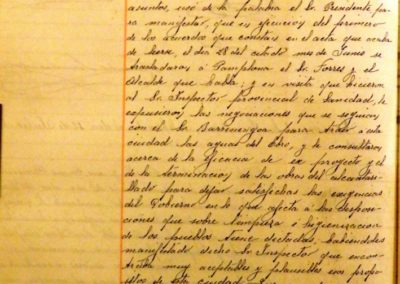 asuntos, usó de la palabra el Sr. Presidente pa-
ra manifestar, que en ejecución del primero
de los acuerdos que constan en el acta que acaba
de leerse, el día 28 del citado mes de Junio se
trasladaron á Pamplona el Sr. Torres y el
Alcalde que habla, y en visita que hicieron
al Sr. Inspector provincial de Sanidad, le
expusieron las negociaciones que se seguían
con el Sr. para traer á esta
ciudad las aguas del Ebro, y le consultaron
acerca de la eficacia de ese proyecto y el
de la terminación de las obras del alcantari-
llado para dejar satisfechas las exigencias
del Gobierno en lo que afecta á las disposi-
ciones que sobre limpieza é higienización
de los pueblos tiene dictadas, habiéndoles
manifestado dicho Sr. Inspector que encon-
traba muy aceptables y plausibles esos propó-
sitos de esta ciudad